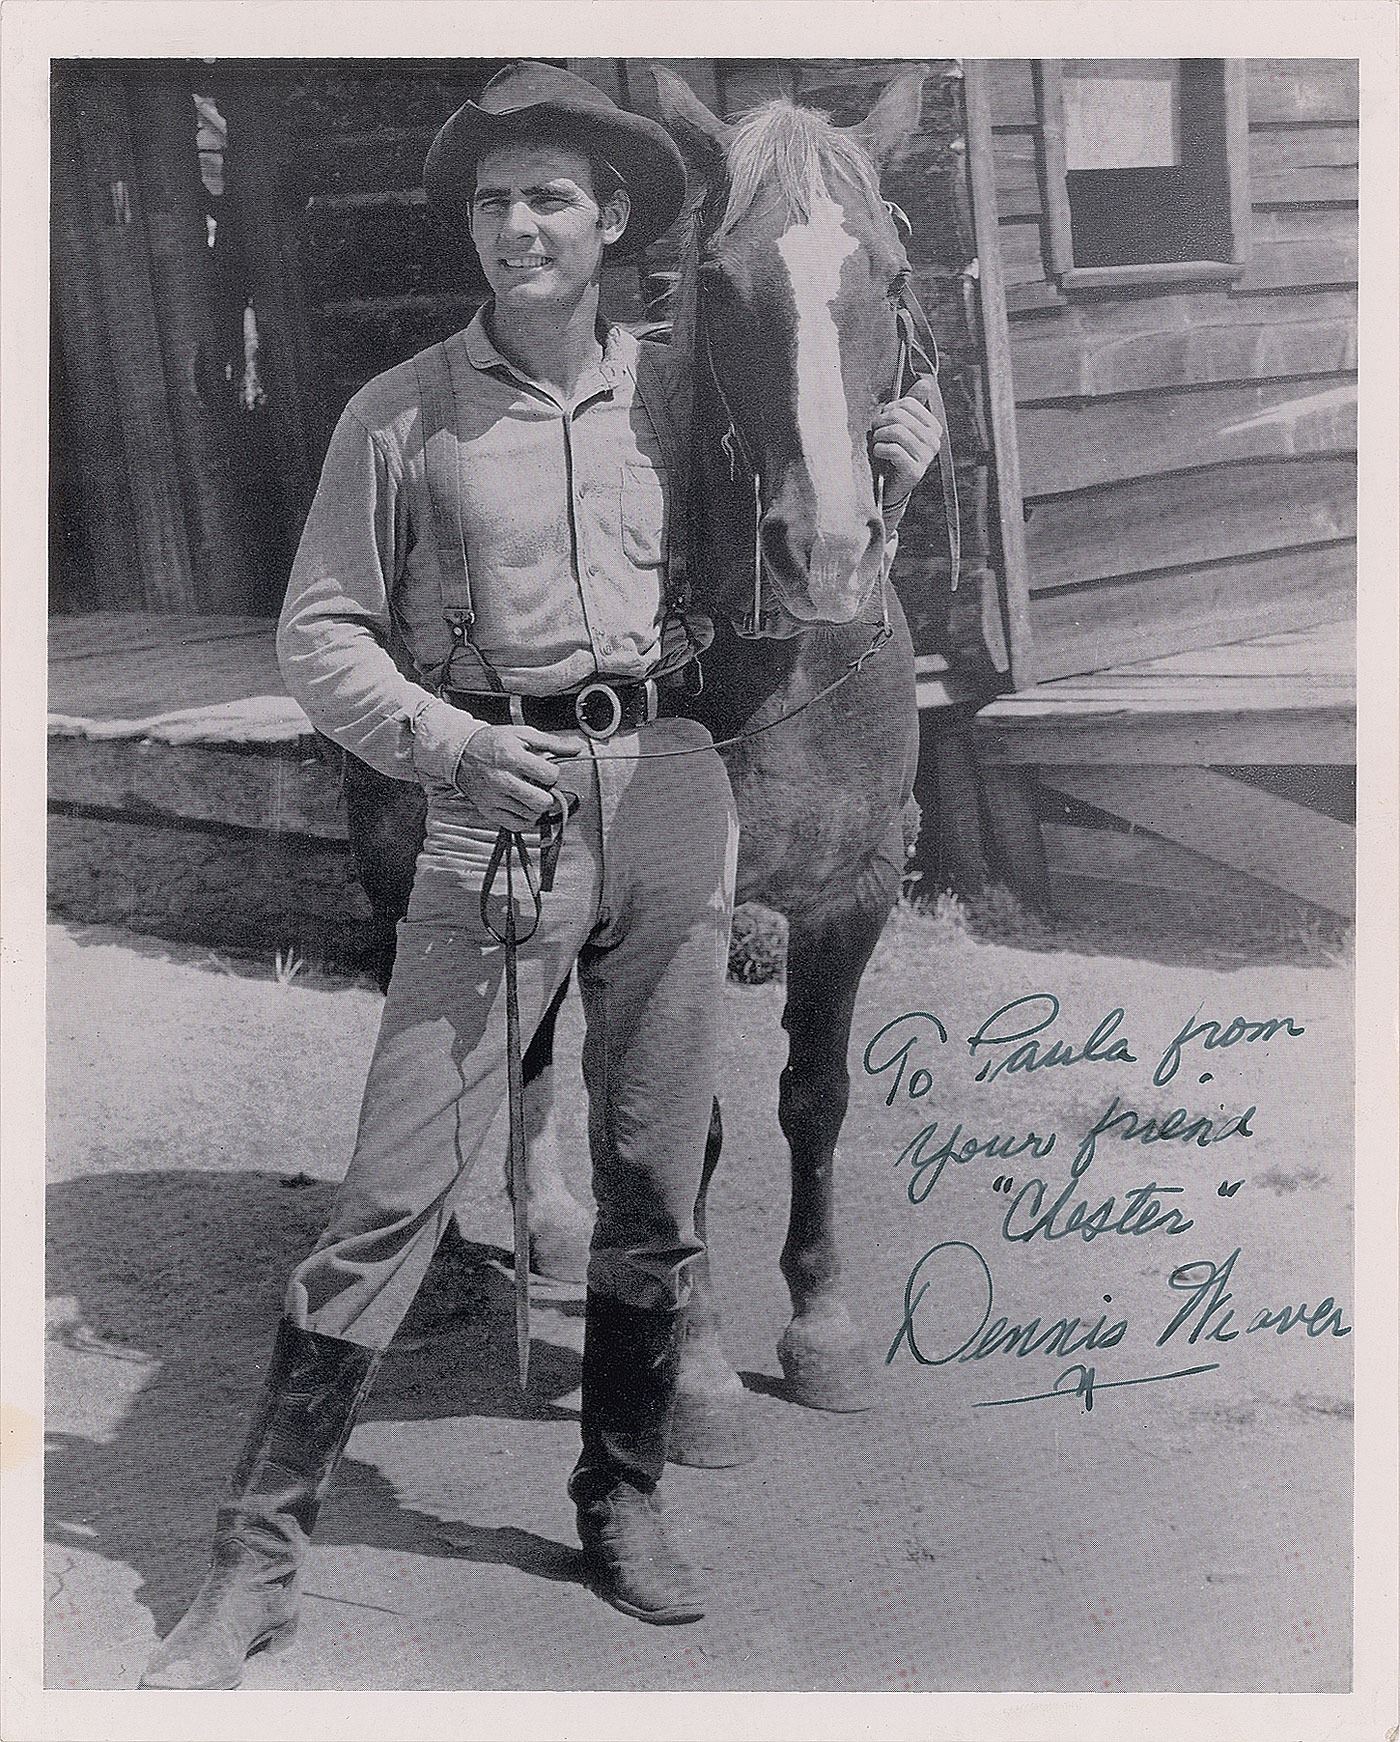 To Paula from
your friend
"Chester"
Dennis Weaver